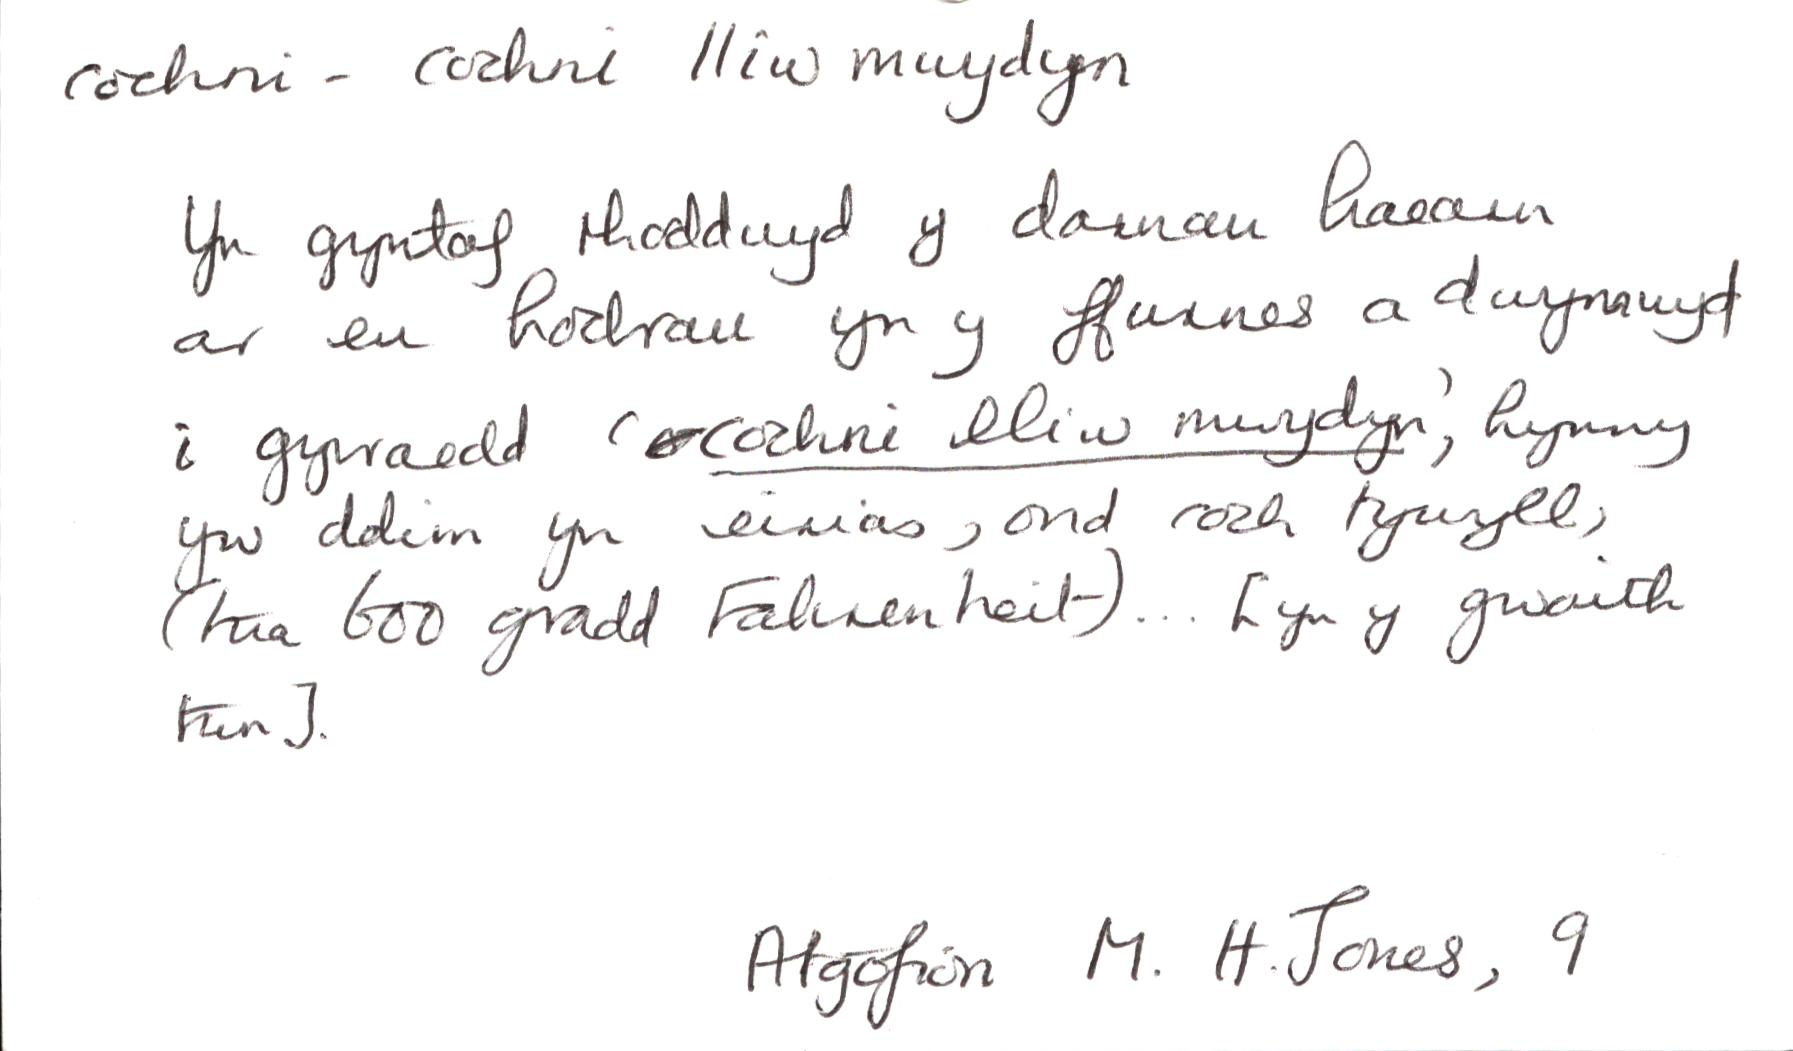 cochni - cochni lliw mwydyn
Yn gyntaf rhodduyd y darnau haearn
ar eu hochrau yn y ffwrnes a dwymwyd
i gyrraedd 'cochni lliw mwydyn', hynny
yw ddim yn eirias, ond coch tywyll,
(tua 600 gradd Fahrenheit)... [yn y gwaith
tun].
Atgofion M. H. Jones, 9